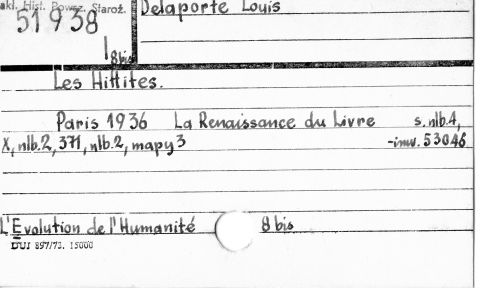 akł. Hist. Powsz. Staroż.
51938
I 8bis
Delaporte Louis
Les Hittites.
Paris 1936 La Renaissance du Livre s. nlb. 4,
X, nlb. 2, 371, nlb. 2, mapy 3 -inw. 53046
L'Evolution de l'Humanité 8 bis
DUJ 897/73. 15000